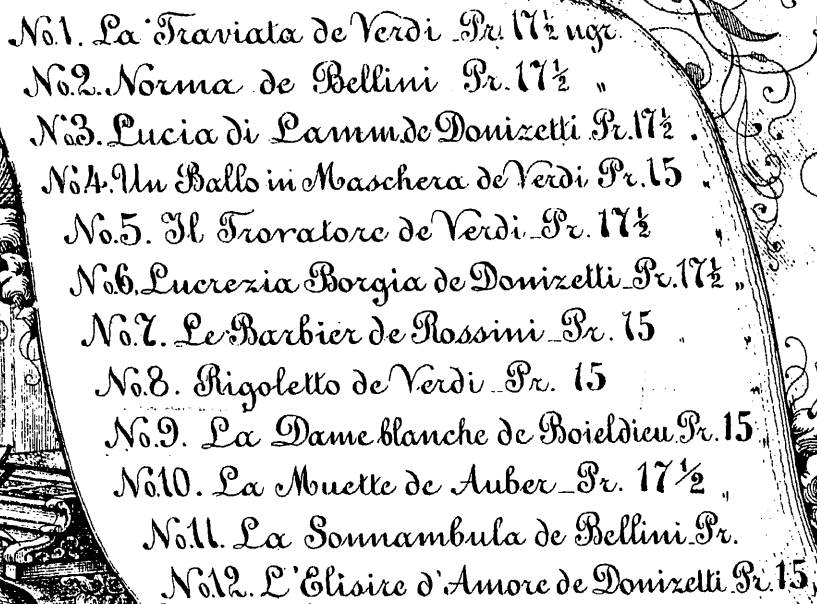 No.1. La Traviata de Verdi Pr. 17½ ngr.
No.2. Norma de Bellini Pr. 17½ "
No.3. Lucia di Lamm. de Donizetti Pr. 17½ "
No.4. Un Ballo in Maschera de Verdi Pr. 15 "
No.5. Il Trovatore de Verdi Pr. 17½ "
No.6. Lucrezia Borgia de Donizetti Pr. 17½ "
No.7. Le Barbier de Rossini Pr. 15 "
No.8. Rigoletto de Verdi Pr. 15
No.9. La Dame blanche de Boieldieu Pr. 15 "
No.10. La Muette de Auber Pr. 17½ "
No.11. La Sonnambula de Bellini Pr.
No.12. L'Elisire d'Amore de Donizetti Pr. 15 "